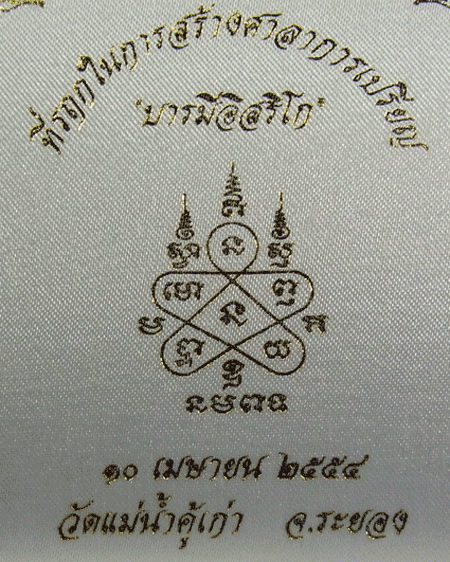 ที่รฤกในการสร้างศาลาการเปรียญ
"บารมีอิสริโก"
๑๐ เมษายน ๒๕๕๔
วัดแม่น้ำคู้เก่า จ.ระยอง